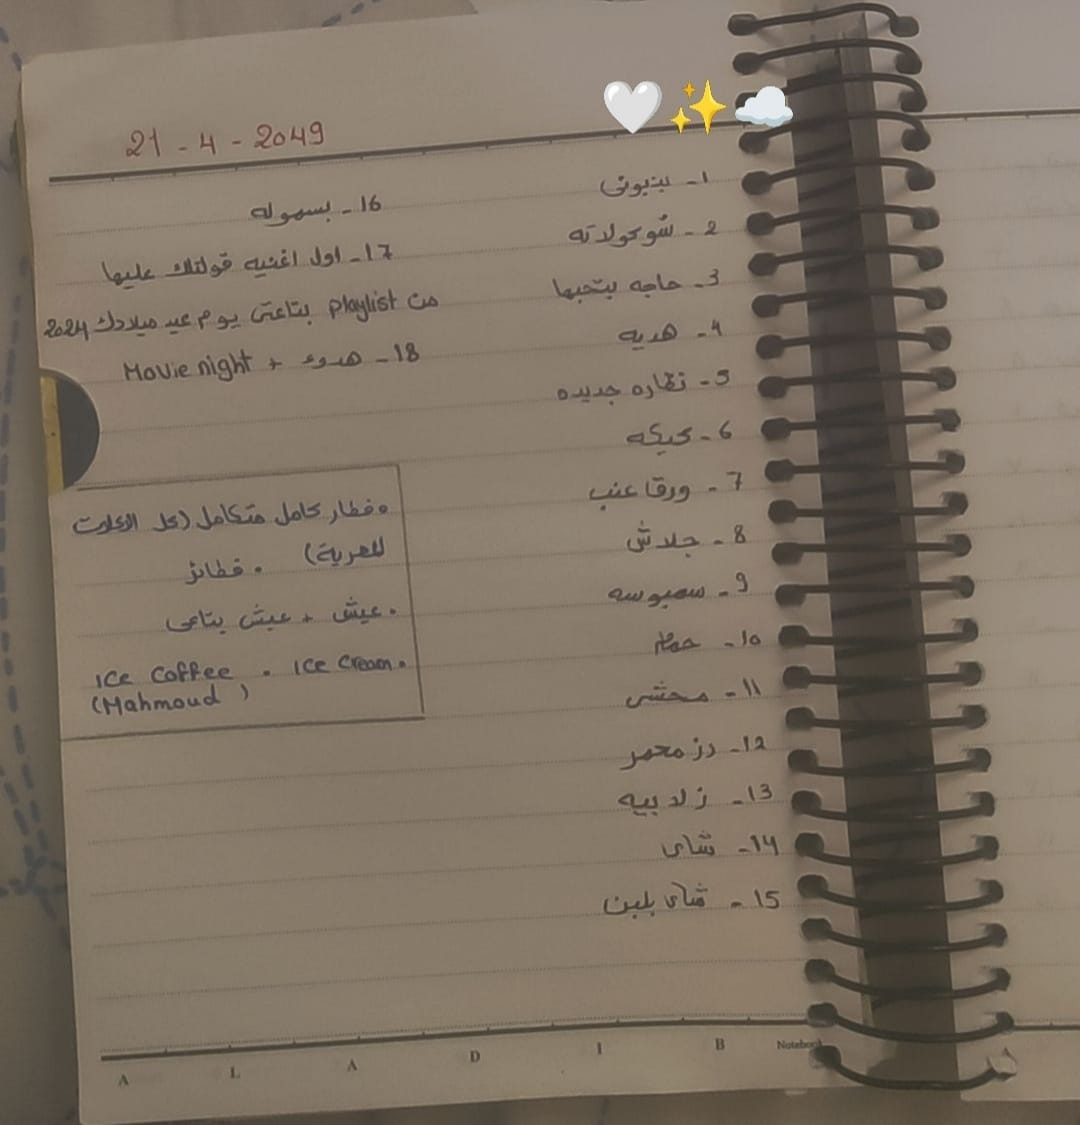 21 - 4 - 2049
1- بنبونى
2- شوكولاته
3- حاجه بتحبها
4- هديه
5- نظاره جديده
6- كيكه
7- ورقا عنب
8- جلاش
9- سمبوسه
10- حمام
11- محشى
12- رز محمر
13- زلابيه
14- شاى
15- شاى بلبن
16- بسموله
17- اول اغنيه قولتلك عليها
من playlist بتاعتى يوم عيد ميلادك 2024
18- هدوء + Movie night
• فطار كامل متكامل (كل الاكلات
المصرية) • فطائر
• عيش + عيش بتاعى
• Ice cream • Ice Coffee
(Mahmoud)
A L A D I B Notebook